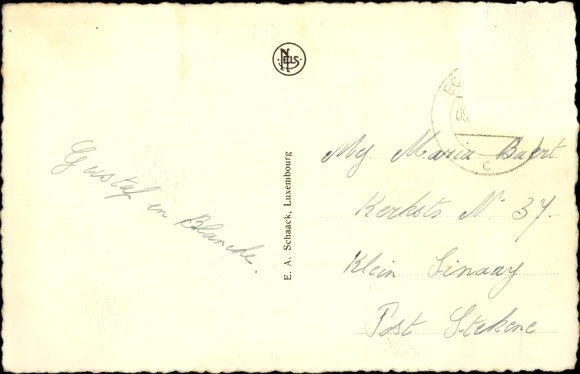 NELS
EC
C
Gustaf en Blanche.
E. A. Schaack, Luxembourg
Mej Maria Baert
Kerkstr N° 37.
Klein Sinaay
Post Stekene